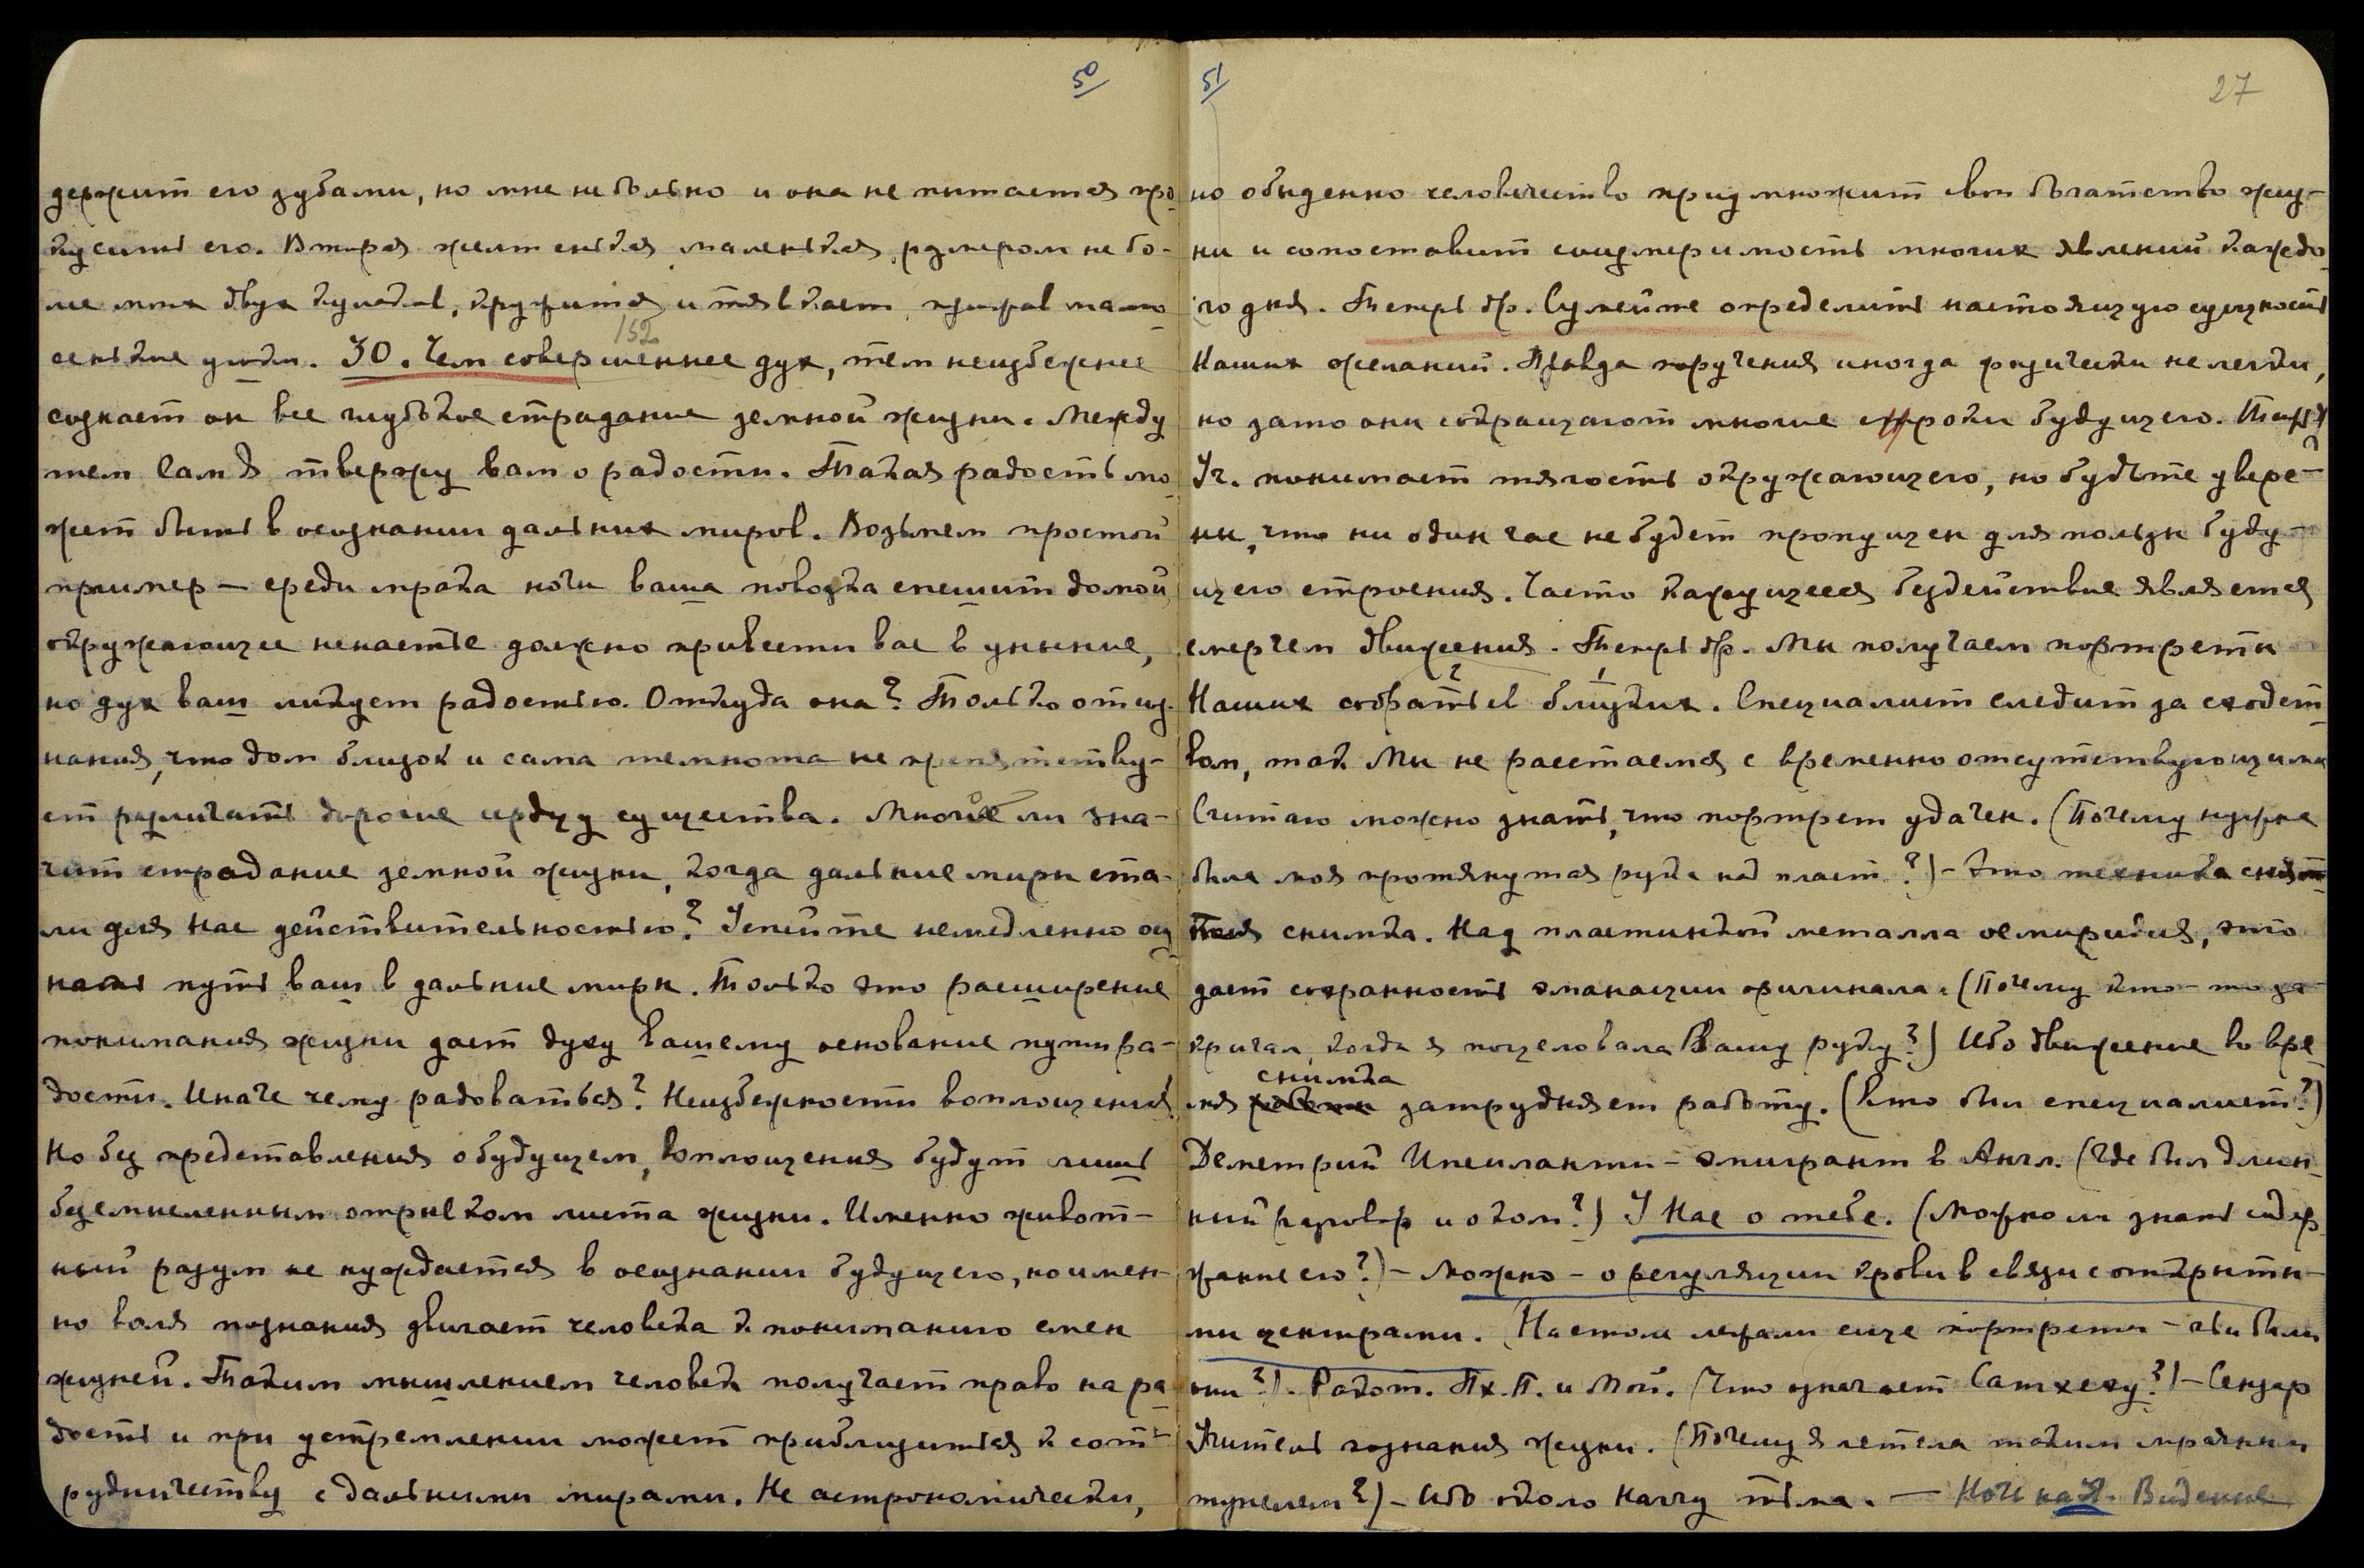 50
держит его зубами, но мне не больно и она не пытается про-
кусить его. Вторая желтенькая маленькая, размером не бо-
лее двух кулаков, кружится и тявкает, поджав мало-
сенькие ушки. 30. Чем совершеннее дух, тем неизбежнее
152
сознает он все глубокое страдание земной жизни. Между
тем Сам Я твержу вам о радости. Такая радость мо-
жет быть в осознании дальних миров. Возьмем простой
пример — среди мрака ночи ваша повозка спешит домой,
окружающее ненастье должно привести вас в уныние,
но дух ваш ликует радостью. Откуда она? Только от соз-
нания, что дом близок и сама темнота не препятству-
ет различать дорогие сердцу существа. Многое ли зна-
чит страдание земной жизни, когда дальние миры ста-
ли для нас действительностью? Успейте немедленно осоз-
нать путь ваш в дальние миры. Только это расширение
понимания жизни дает духу вашему основание пути ра-
дости. Иначе чему радоваться? Неизбежности воплощения.
Но без представления о будущем, воплощения будут лишь
бессмысленным отрывком листа жизни. Именно живот-
ный разум не нуждается в осознании будущего, но имен-
но воля познания двигает человека к пониманию смен
жизней. Таким мышлением человек получает право на ра-
дость и при устремлении может приблизиться к сот-
рудничеству с дальними мирами. Не астрономически,
51
27
но обыденно человечество приумножит свои богатство жиз-
ни и сопоставит соизмеримость многих явлений каждо-
го дня. Теперь др. Сумейте определить настоящую сущность
Наших желаний. Правда поручения иногда физически не легки,
но зато они сокращают многие сроки будущего.
Уч. понимает тягость окружающего, но будьте увере-
ны, что ни один час не будет пропущен для пользы буду-
щего строения. Часто кажущееся бездействие является
смерчем движения. Теперь др. Мы получаем портреты
Наших собратьев близких. Специалист следит за сходст-
вом, так Мы не расстаемся с временно отсутствующими
Считаю можно знать, что портрет удачен. (Почему нужна
была моя протянутая рука над пласт.?) — Это техника
снимка. Над пластинкой металла осмиридия, это
дает сохранность эманации оригинала. (Почему кто-то за-
кричал, когда я поцеловала Вашу руку?) Ибо движение во вре-
снимка
мя затрудняет работу. (Кто был специалист?)
Деметрий Ипсиланти — эмигрант в Англ. (Где был длин-
ный разговор и о ком?) У Нас о тебе. (Можно ли знать содер-
жание его?) — Можно — о регуляции крови в связи с открыты-
ми центрами. (На столе лежали еще портреты — чьи были
они?). Ракот. Пх. П. и Мой. (Что означает Сатхеву?) — Сензар
Учитель познания жизни. (Почему я летела таким мрачным
тунелем?) — Ибо около Наггу тьма. — Ночь на Видение